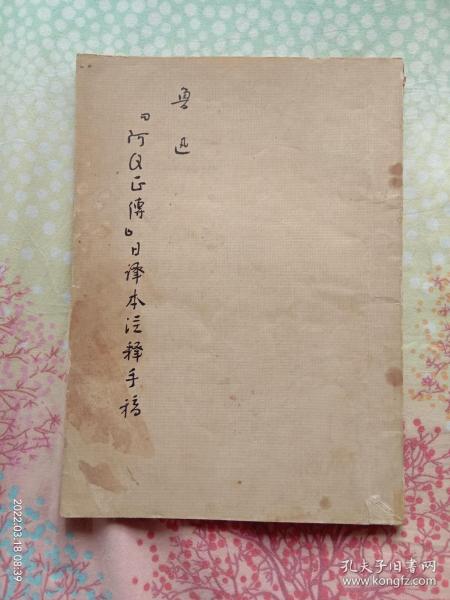 鲁迅
『阿Q正傳』日译本注释手稿
2022.03.18 08:39
孔夫子旧书网
www.kongfz.com